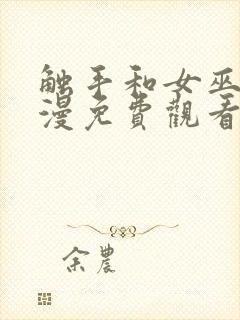 触手和女巫
漫免費觀看
余農